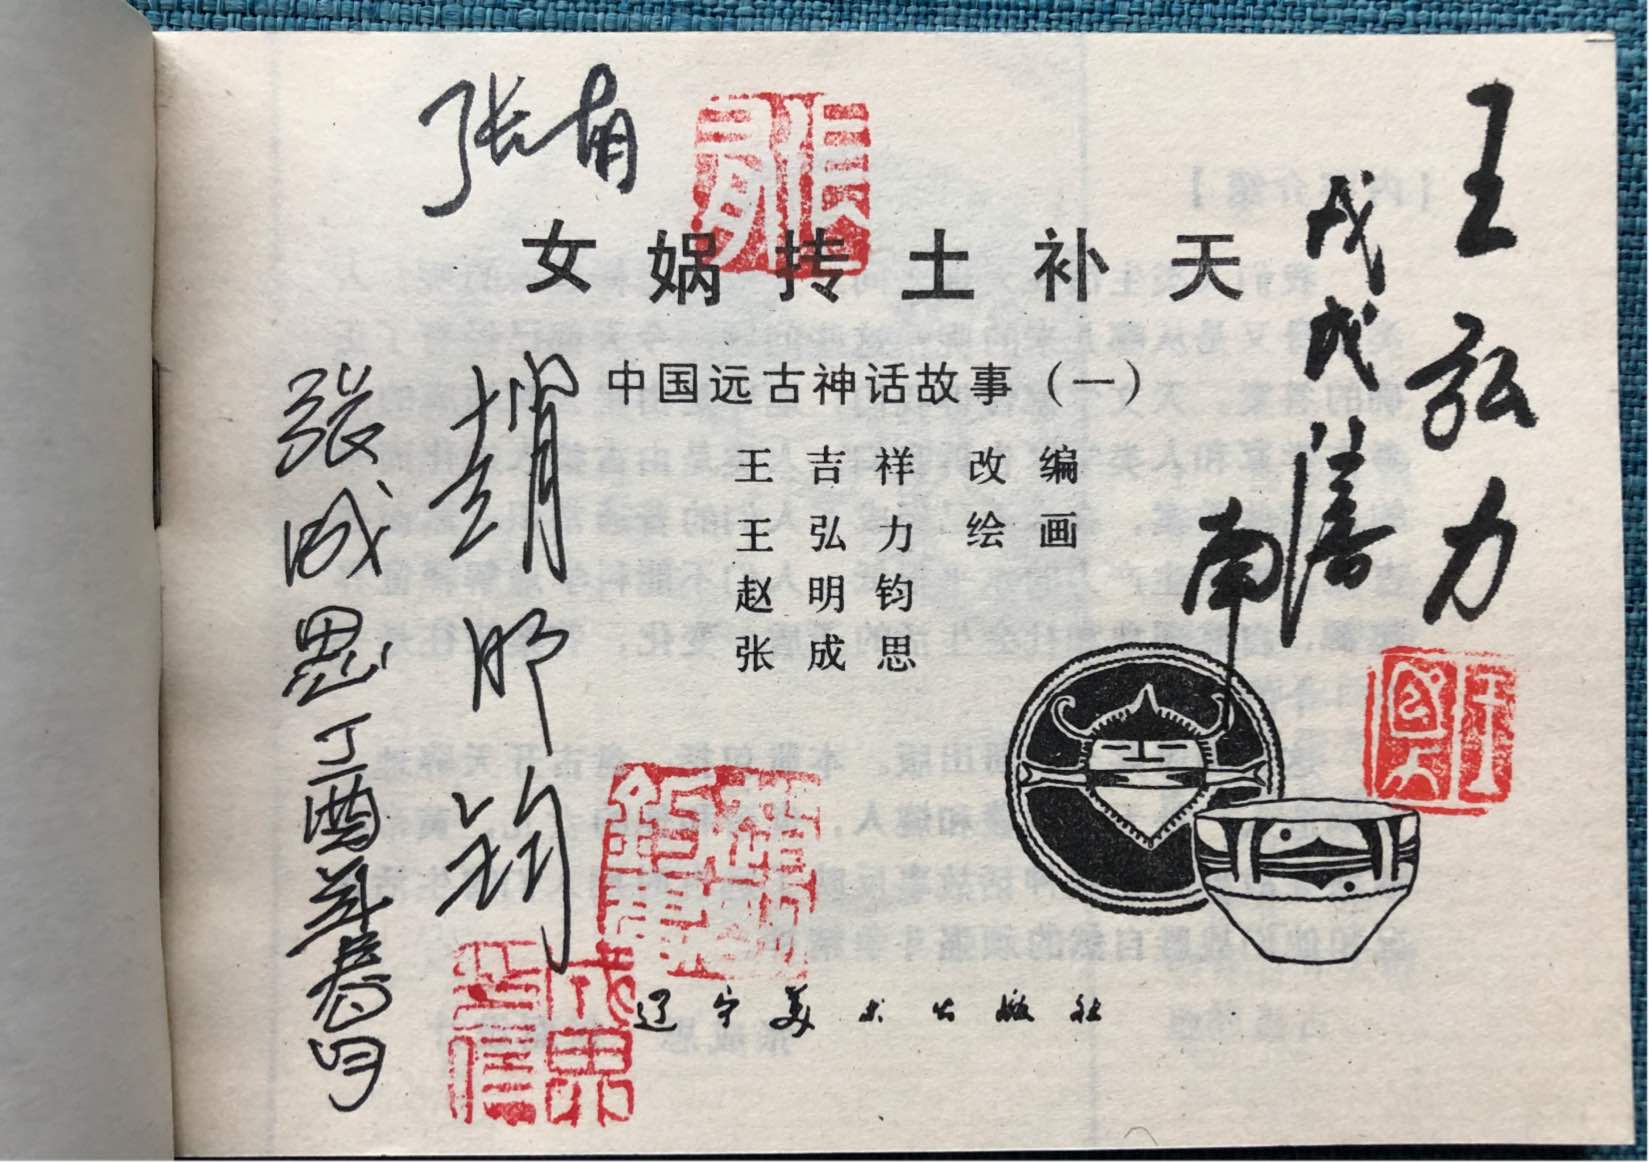 张
女娲抟土补天
中国远古神话故事（一）
王吉祥 改编
王弘力 绘画
赵明钧
张成思
辽宁美术出版社
王弘力
戊戌
南
趙明钧
張成思
丁酉年春月